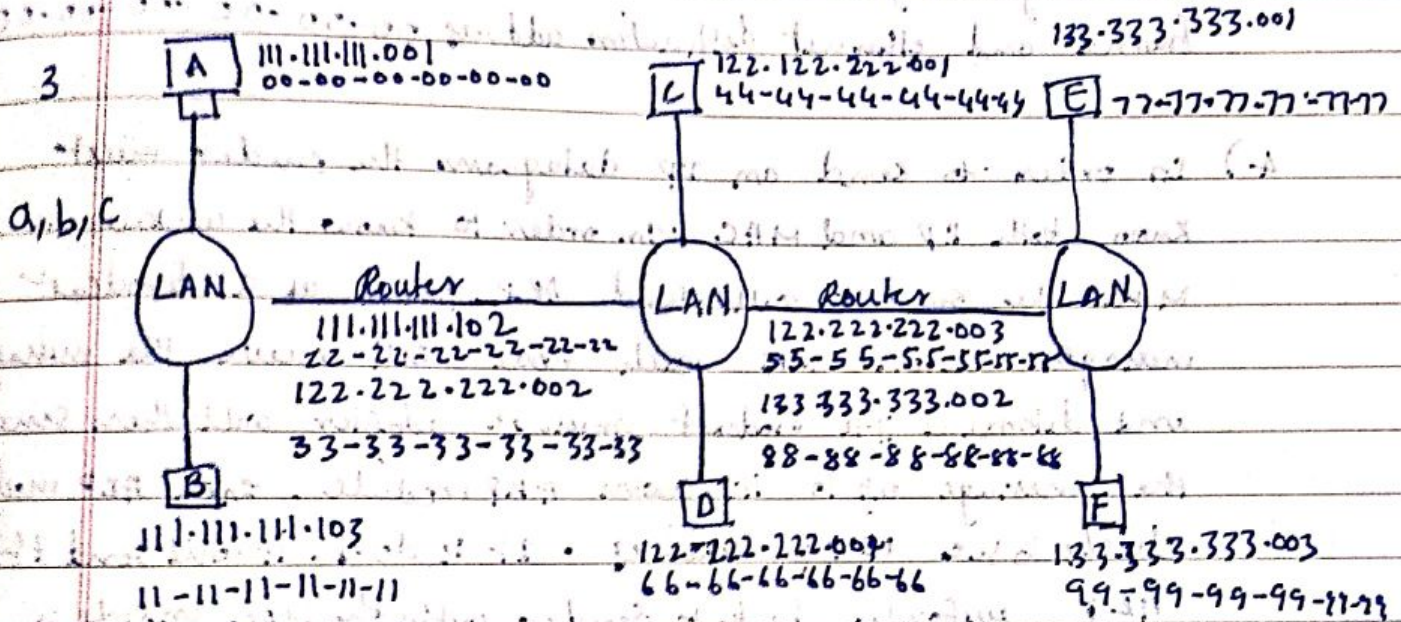 3
a, b, c
A
111.111.111.001
00-00-00-00-00-00
C
122.122.222.001
44-44-44-44-44-44
133.333.333.001
E
77-77-77-77-77-77
LAN
Router
111.111.111.102
22-22-22-22-22-22
122.222.222.002
33-33-33-33-33-33
LAN
Router
122.222.222.003
55-55-55-55-55-55
133.333.333.002
88-88-88-88-88-88
LAN
B
111.111.111.103
11-11-11-11-11-11
D
122.222.222.004
66-66-66-66-66-66
F
133.333.333.003
99-99-99-99-99-99